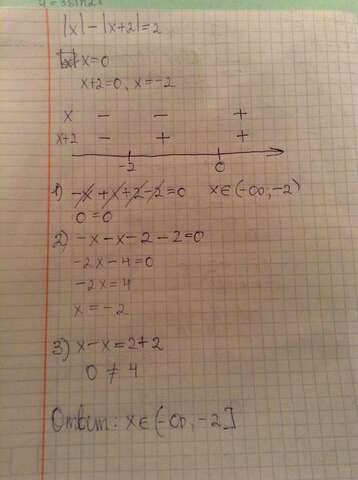 |x| - |x+2| = 2
x=0
x+2=0, x=-2
x - - +
x+2 - + +
-2 0
1) -x+x+2-2=0 x∈(-∞,-2)
0=0
2) -x-x-2-2=0
-2x-4=0
-2x=4
x=-2
3) x-x=2+2
0≠4
Ответ: x∈(-∞,-2]